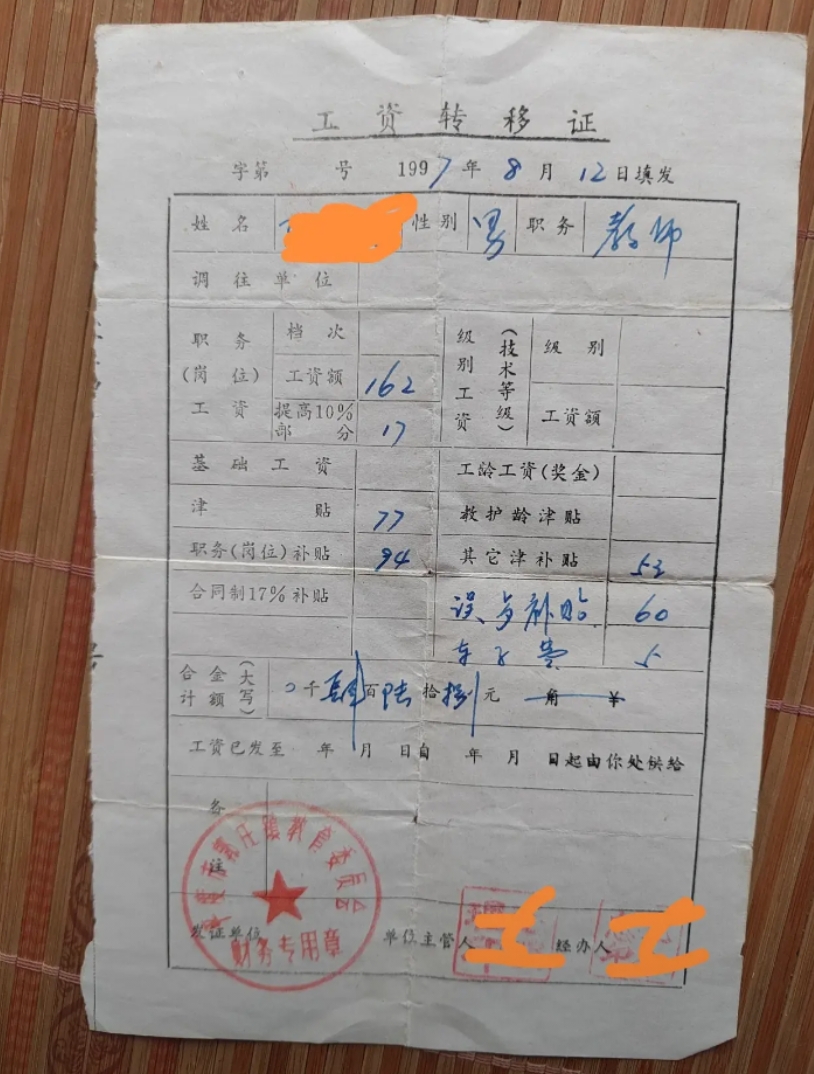 工资转移证
字第 号 1997年8月12日填发
姓名 性别 男 职务 教师
调往单位
职务(岗位)工资 档次 级别工资(技术等级) 级别
工资额 162 工资额
提高10%部分 17
基础工资 工龄工资(奖金)
津贴 77 教护龄津贴
职务(岗位)补贴 94 其它津补贴 53
合同制17%补贴 误 补贴 60
车 费 5
合计金额(大写) 0千肆百陆拾捌元 角 ¥
工资已发至 年 月 日自 年 月 日起由你处供给
备注
教育委员会
财务专用章
发证单位 单位主管人 经办人